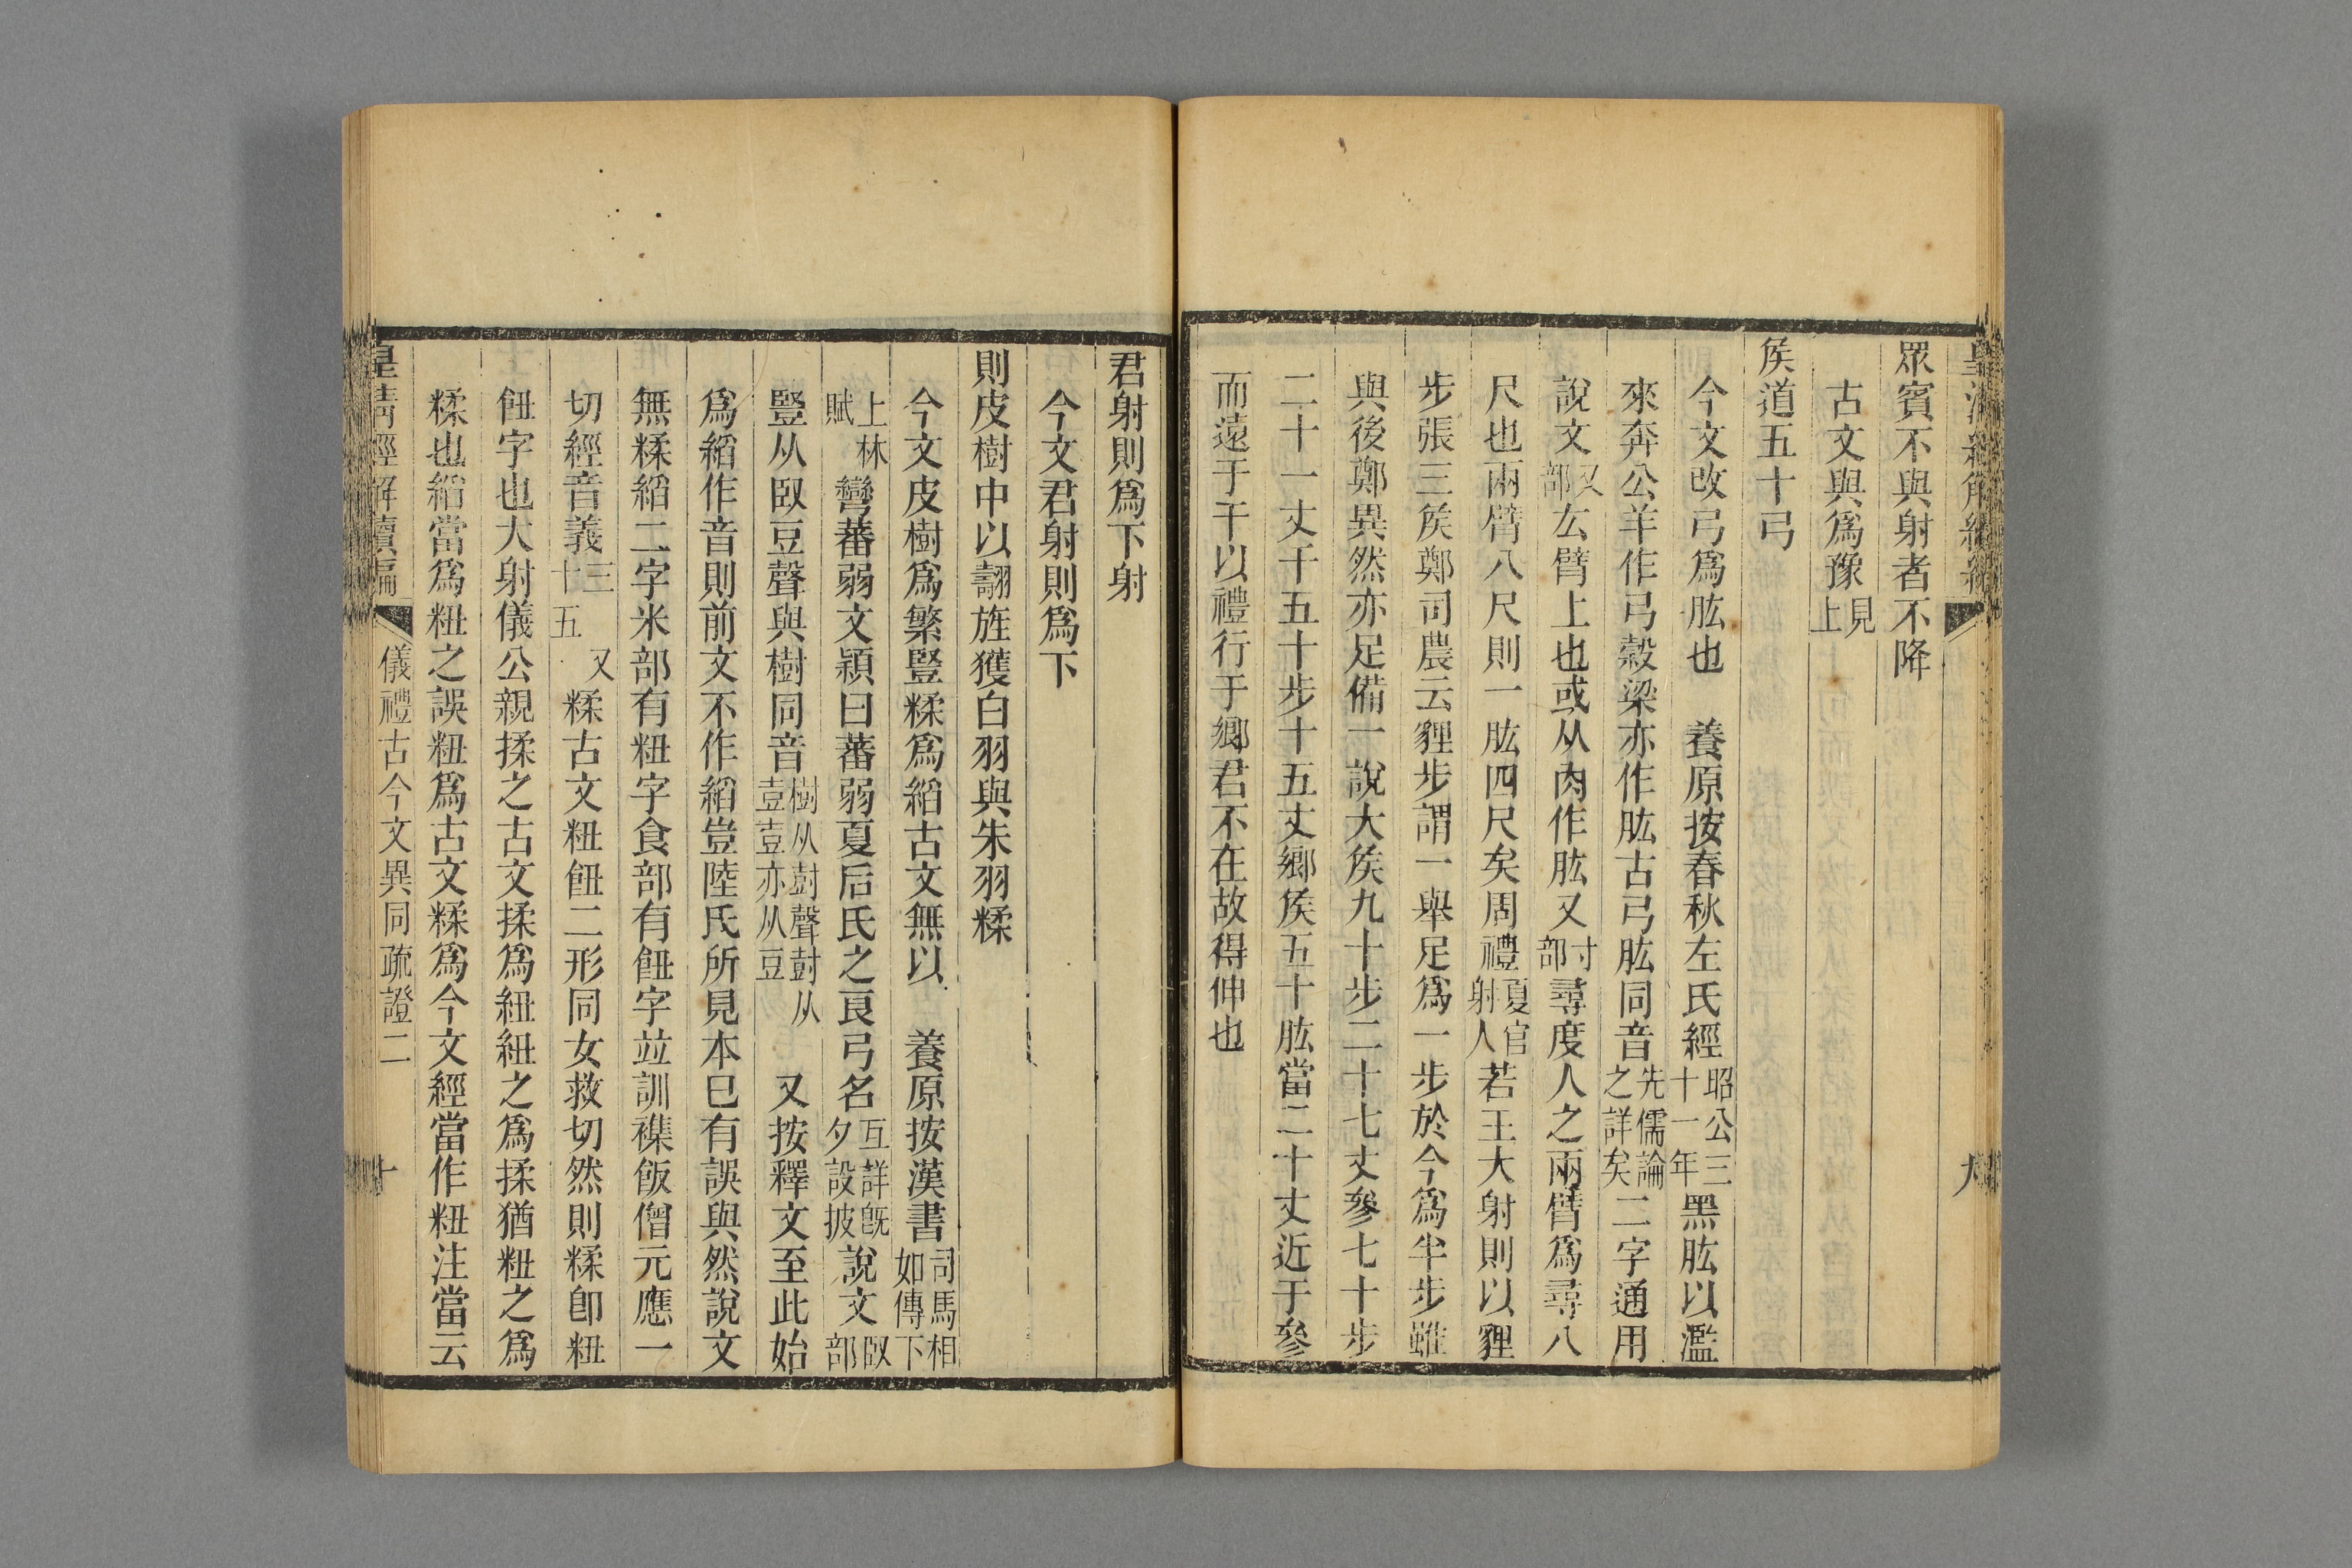 眾賓不與射者不降
古文與爲豫見上
矦道五十弓
今文改弓爲肱也　養原按春秋左氏經昭公三十一年黑肱以濫
來奔公羊作弓穀梁亦作肱古弓肱同音先儒論之詳矣二字通用
說文又部厷臂上也或从肉作肱又寸部尋度人之兩臂爲尋八
尺也兩臂八尺則一肱四尺矣周禮夏官射人若王大射則以貍
步張三矦鄭司農云貍步謂一舉足爲一步於今爲半步雖
與後鄭異然亦足備一說大矦九十步二十七丈參七十步
二十一丈干五十步十五丈鄉矦五十肱當二十丈近于參
而遠于干以禮行于鄉君不在故得伸也
君射則爲下射
今文君射則爲下
則皮樹中以翿旌獲白羽與朱羽糅
今文皮樹爲繁豎糅爲縚古文無以　養原按漢書司馬相如傳下
上林賦彎蕃弱文穎曰蕃弱夏后氏之良弓名互詳旣夕設披說文臤部
豎从臤豆聲與樹同音樹从尌聲尌从壴壴亦从豆　又按釋文至此始
爲縚作音則前文不作縚豈陸氏所見本巳有誤與然說文
無糅縚二字米部有粈字食部有飷字竝訓襍飯僧元應一
切經音義三十五　又糅古文粈飷二形同女救切然則糅卽粈
飷字也大射儀公親揉之古文揉爲紐紐之爲揉猶粈之爲
糅也縚當爲粈之誤粈爲古文糅爲今文經當作粈注當云
皇清經解續編　儀禮古今文異同疏證二　十